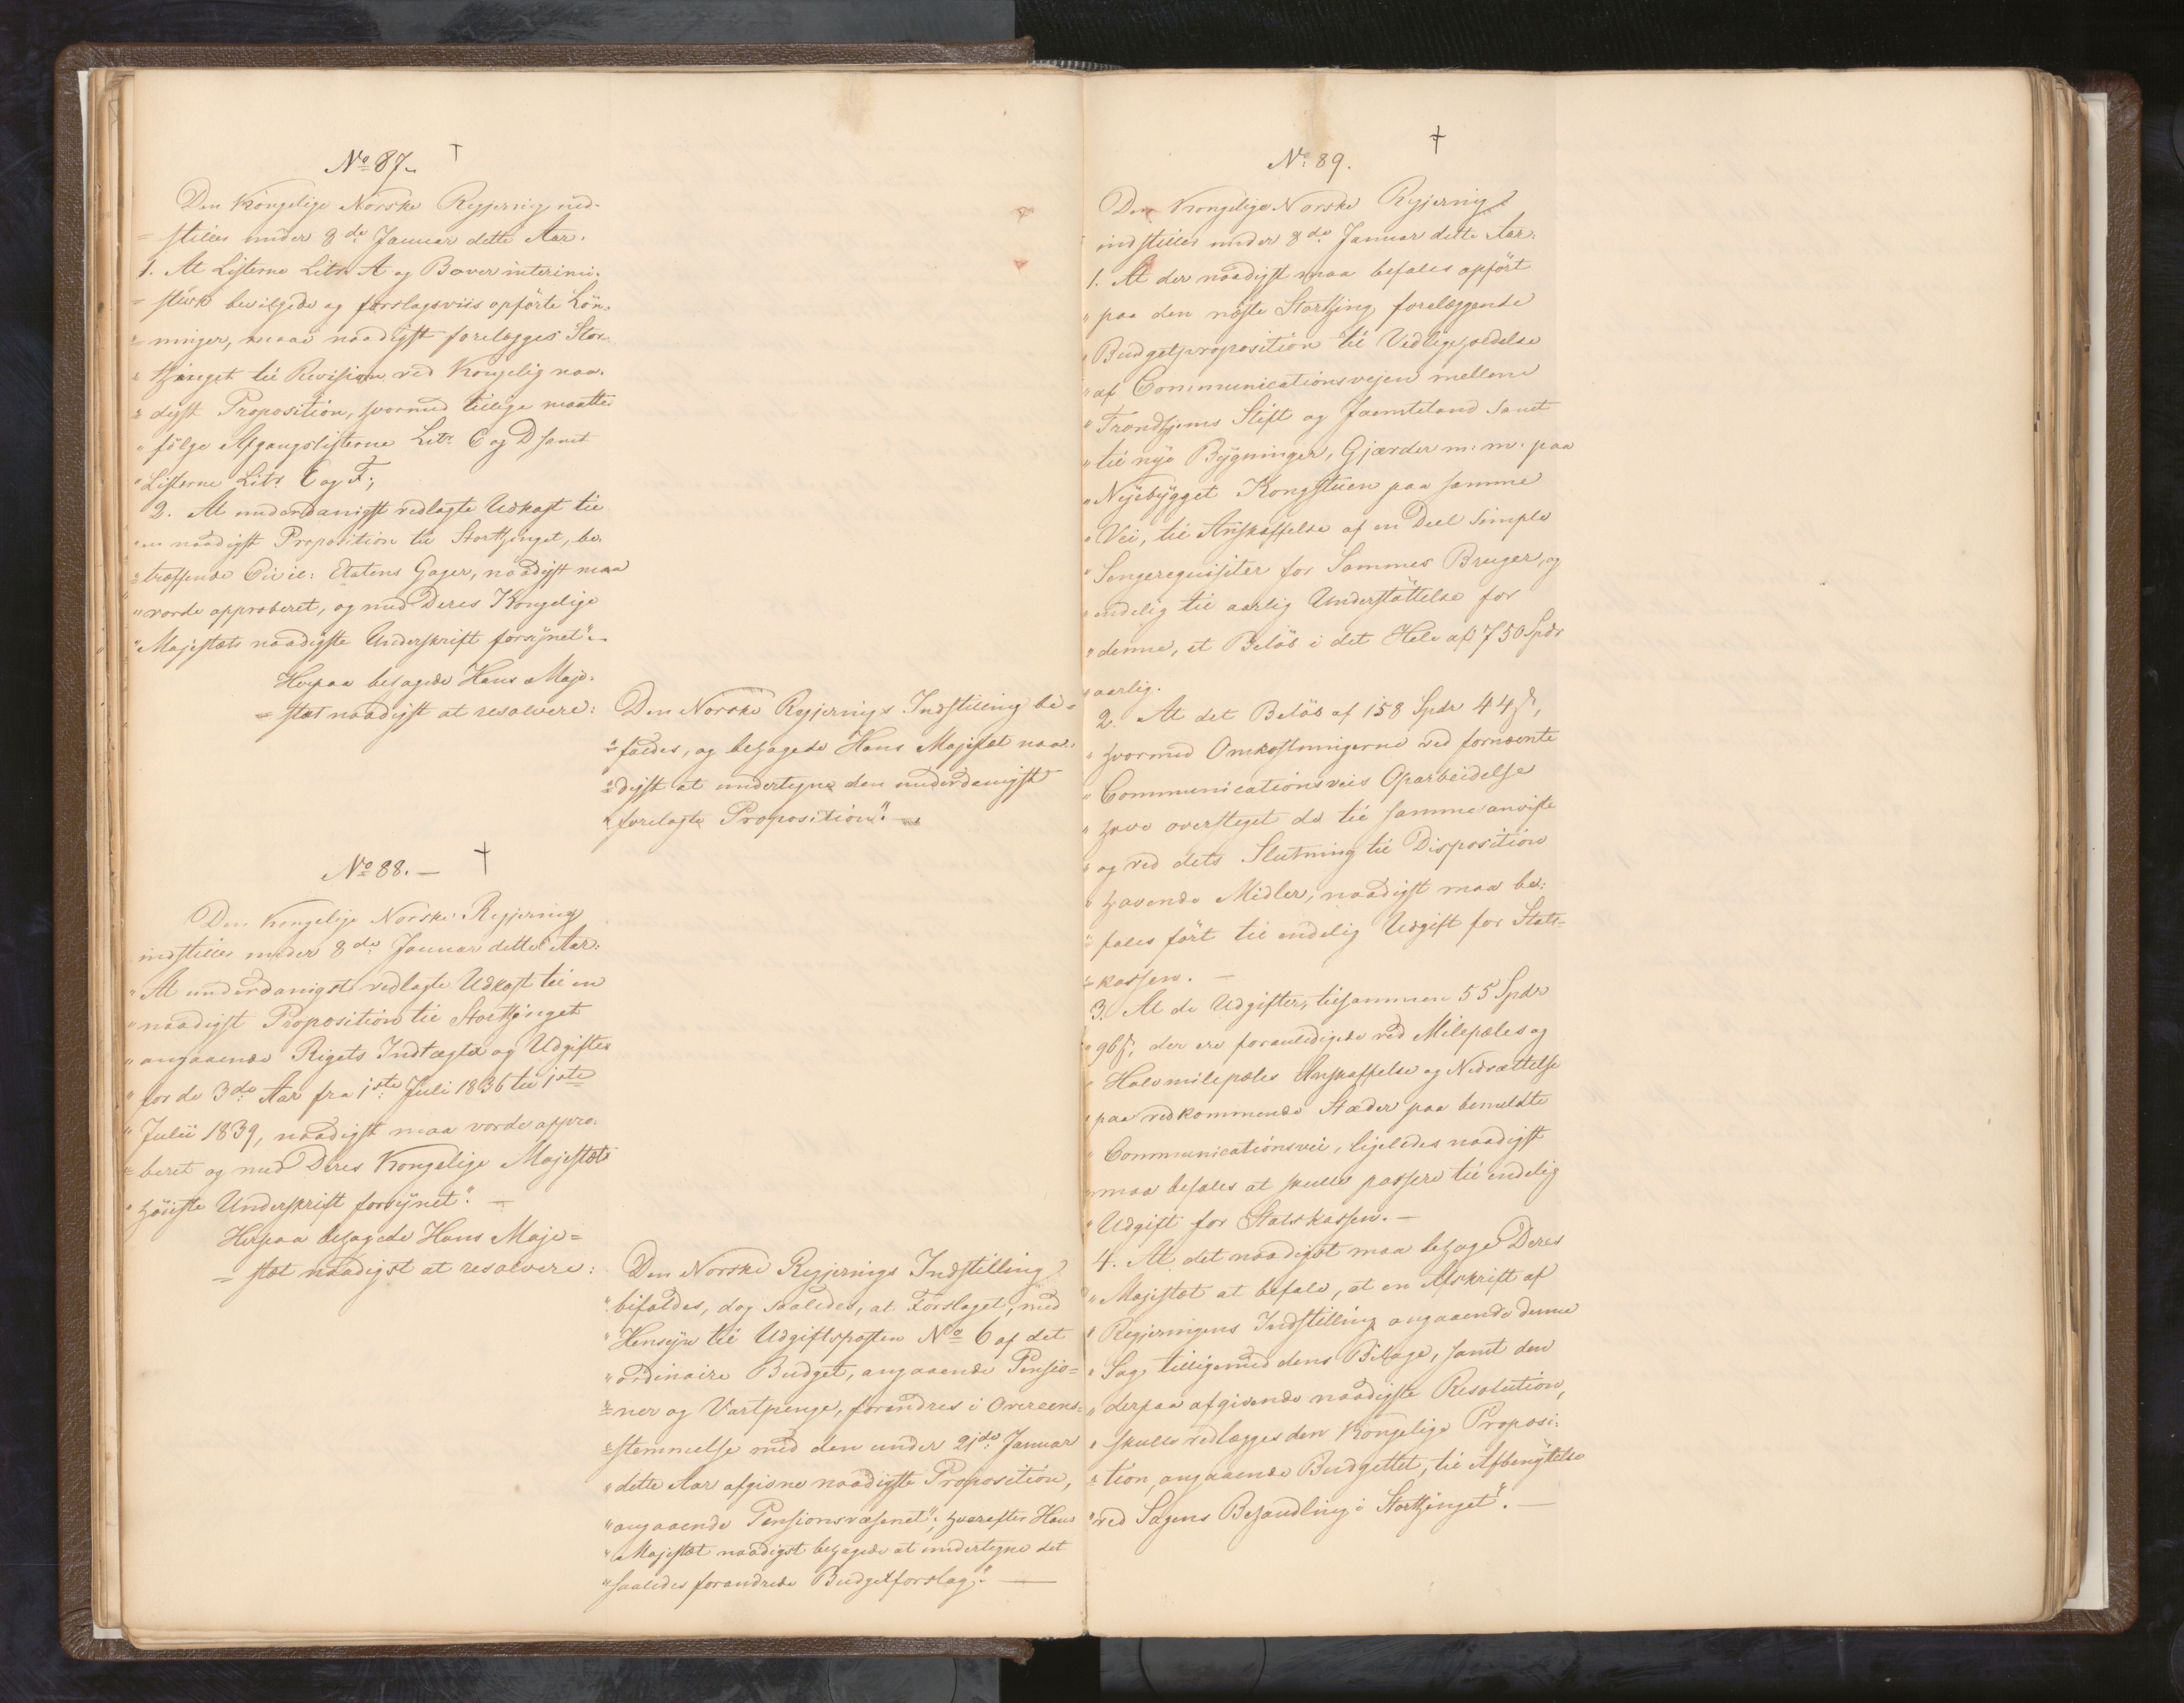 No 87. †
Den Kongelige Norske Regjering ind-
= stiller under 8de Januar dette Aar:
1. At Listerne Litr. A og B over interimi-
= stisk bevilgede og forslagsviis opförte Lön-
= ninger, maae naadigst forelægges Stor-
= thinget til Revision ved Kongelig naa-
= digst Proposition, hvormed tillige maatte
" fölge Afgangslisterne Litr. C og D samt
" Listerne Litr. E og F;
2. At underdanigst vedlagte Udkast til
" en naadigst Proposition til Storthinget, be-
= træffende Civil-Etatens Gager, naadigst maa
" vorde approberet, og med Deres Kongelige
" Majestæts naadigste Underskrift forsynet".
Herpaa behagede Hans Maje-
= stæt naadigst at resolvere:
Den Norske Regjerings Indstilling bi-
= faldes, og behagede Hans Majestæt naa-
= digst at undertegne den underdanigst
" forelagte Proposition".
No 88. — †
Den Kongelige Norske Regjering
indstiller under 8de Januar dette Aar:
" At underdanigst vedlagte Udkast til en
" naadigst Proposition til Storthinget
" angaaende Rigets Indtægter og Udgifter
" for de 3de Aar fra 1ste Juli 1836 til 1ste
" Julii 1839, naadigst maa vorde appro-
= beret og med Deres Kongelige Majestæts
" höieste Underskrift forsynet". —
Herpaa behagede Hans Maje=
= stæt naadigst at resolvere:
Den Norske Regjerings Indstilling
" bifaldes, dog saaledes, at Forslaget, med
" Hensyn til Udgiftsposten No 6 af det
" ordinaire Budget, angaaende Pensio=
= ner og Vartpenge, forandres i Overeens=
= stemmelse med den under 21de Januar
" dette Aar afgivne naadigste Proposition,
" angaaende Pensionsvæsenet"; hvorefter Hans
" Majestæt naadigst behagede at undertegne det
" saaledes forandrede Budgetforslag." —
No 89. †
Den Kongelige Norske Regjering
indstiller under 8de Januar dette Aar:
1. At der naadigst maa befales opfört
" paa den næste Storthing forelæggende
" Budgetproposition til Vedligeholdelse
" af Communicationsvejen mellem
" Trondhjems Stift og Jæmteland samt
" til nye Bygninger, Gjærder m: m: paa
" Nyebygget Kongstuen paa samme
" Vei, til Anskaffelse af en Deel simple
" Sengerequisiter for Sammes Bruger, og
" endelig til aarlig Understöttelse for
" denne, et Belöb i det Hele af 750 Spdr
" aarlig.
2. At det Belöb af 158 Spdr 44 ß,
" hvormed Omkostningerne ved fornævnte
" Communicationsveis Oparbeidelse
" have oversteget de til samme anviste
" og ved dets Slutning til Disposition
" havende Midler, naadigst maa be-
= fales fört til endelig Udgift for Stats-
= kassen. —
3. At de Udgifter, tilsammen 55 Spdr
" 96 ß, der ere foranledigede ved Milepæles og
" Halvmilepæles Anskaffelse og Nedsættelse
" paa vedkommende Stæder paa bemeldte
" Communicationsvei, ligeledes naadigst
" maa befales at skulle passere til endelig
" Udgift for Statskassen. —
4. At det naadigst maa behage Deres
" Majestæt at befale, at en Afskrift af
" Regjeringens Indstilling angaaende denne
" Sag, tilligemed dens Bilage, samt den
" derpaa afgivende naadigste Resolution,
" skulle vedlægges den Kongelige Proposi-
= tion, angaaende Budgettet, til Afbenyttelse
" ved Sagens Behandling i Storthinget". —